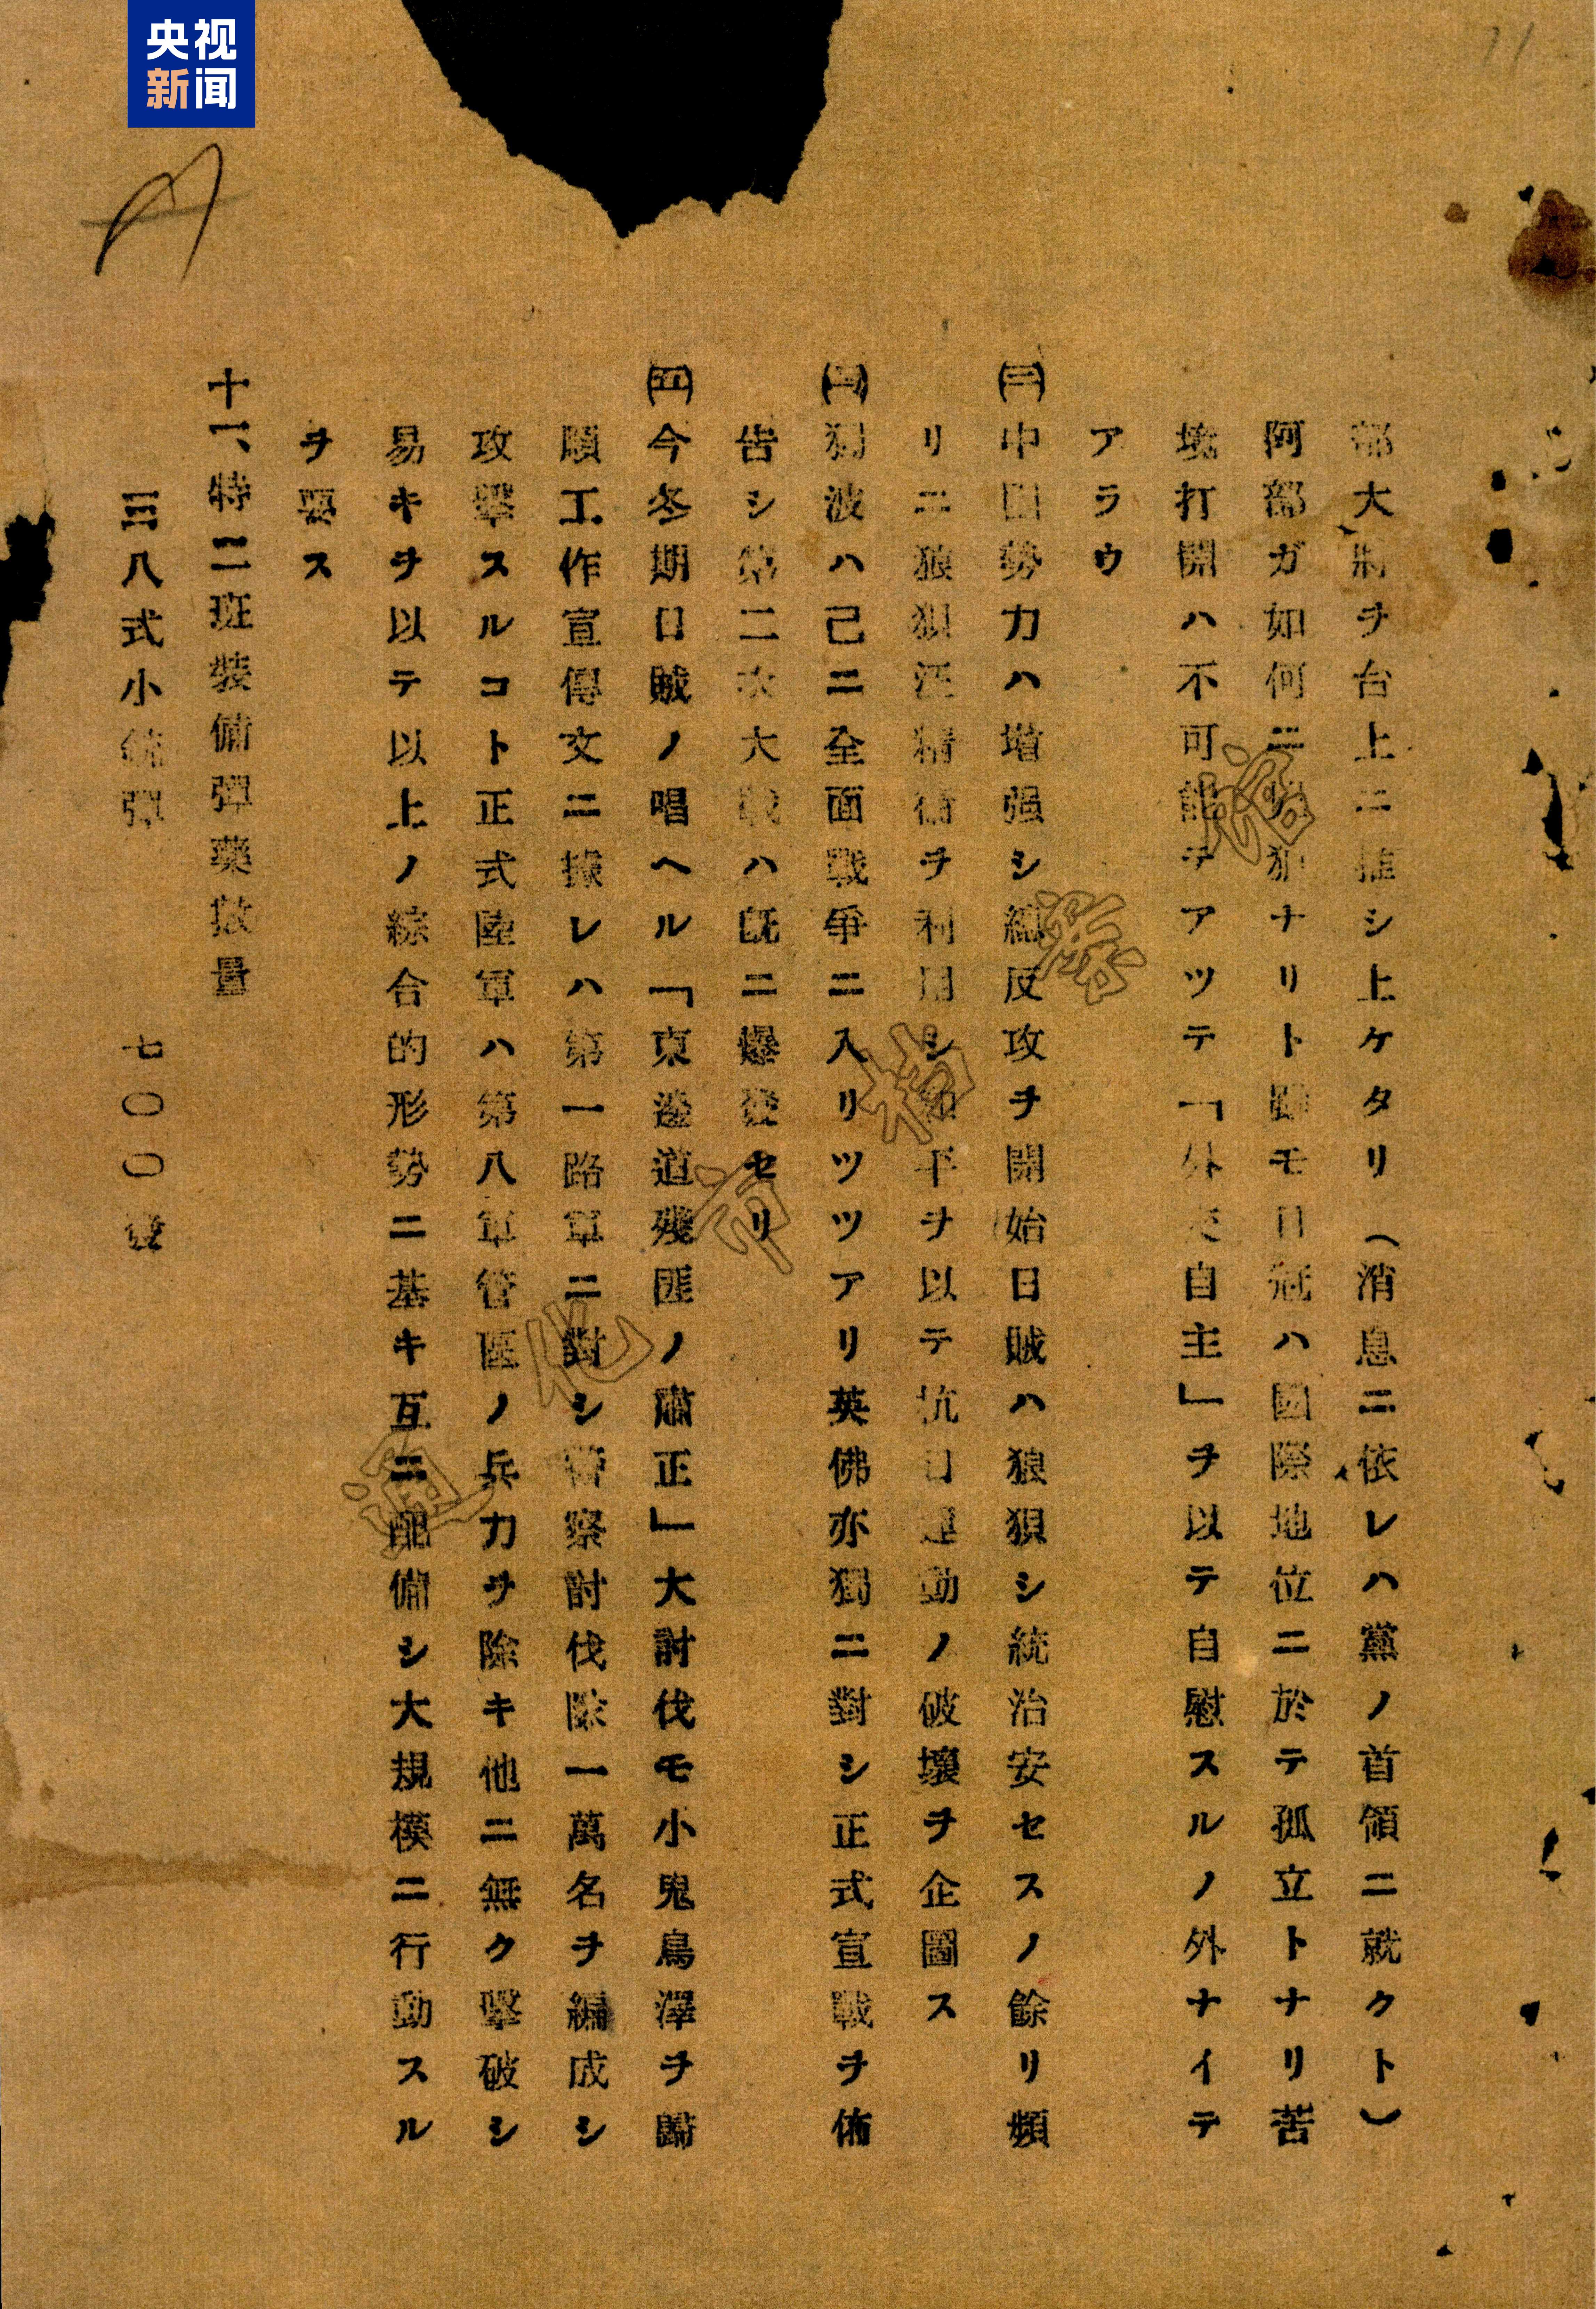 央视
新闻
11
部大將ヲ台上ニ推シ上ケタリ（消息ニ依レハ黨ノ首領ニ就クト）
阿部ガ如何ニ狼ナリト雖モ日冦ハ國際地位ニ於テ孤立トナリ苦
境打開ハ不可能デアツテ「外交自主」ヲ以テ自慰スルノ外ナイテ
アラウ
(三)中国勢力ハ増强シ總反攻ヲ開始日賊ハ狼狽シ統治安セスノ餘リ頻
リニ狼狽汪精衛ヲ利用シ和平ヲ以テ抗日運動ノ破壞ヲ企圖ス
獨波ハ己ニ全面戰爭ニ入リツツアリ英佛亦獨ニ對シ正式宣戰ヲ佈
告シ第二次大戰ハ既ニ爆發セリ
(五)今冬期日賊ノ唱ヘル「東邊道殘匪ノ肅正」大討伐モ小鬼鳥澤ヲ歸
順工作宣傳文ニ據レハ第一路軍ニ對シ警察討伐隊一萬名ヲ編成シ
攻擊スルコト正式陸軍ハ第八軍管區ノ兵力ヲ除キ他ニ無ク擊破シ
易キヲ以テ以上ノ綜合的形勢ニ基キ互ニ配備シ大規模ニ行動スル
ヲ要ス
十一、特二班裝備彈藥數量
三八式小銃彈 七〇〇發
通化市档案馆